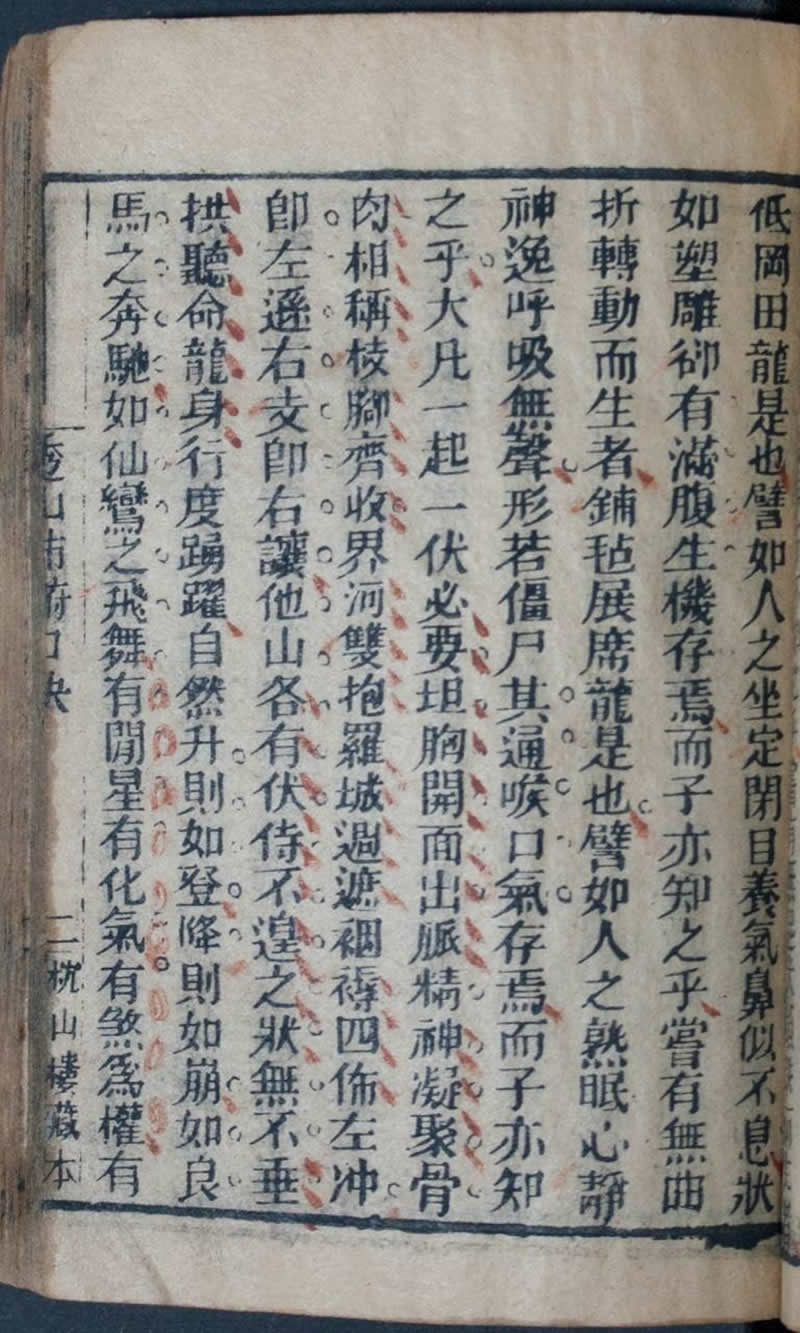 低岡田龍是也譬如人之坐定閉目養氣鼻似不息狀
如塑雕卻有滿腹生機存焉而子亦知之乎嘗有無曲
折轉動而生者鋪毡展席龍是也譬如人之熟眠心靜
神逸呼吸無聲形若僵尸其通喉口氣存焉而子亦知
之乎大凡一起一伏必要坦胸開面出脈精神凝聚骨
肉相稱枝腳齊收界河雙抱羅城過遮裀褥四佈左冲
卽左遜右支卽右讓他山各有伏侍不遑之狀無不垂
拱聽命龍身行度踴躍自然升則如登降則如崩如良
馬之奔馳如仙鸞之飛舞有閒星有化氣有煞為權有
山 口訣
二 枕山樓藏本